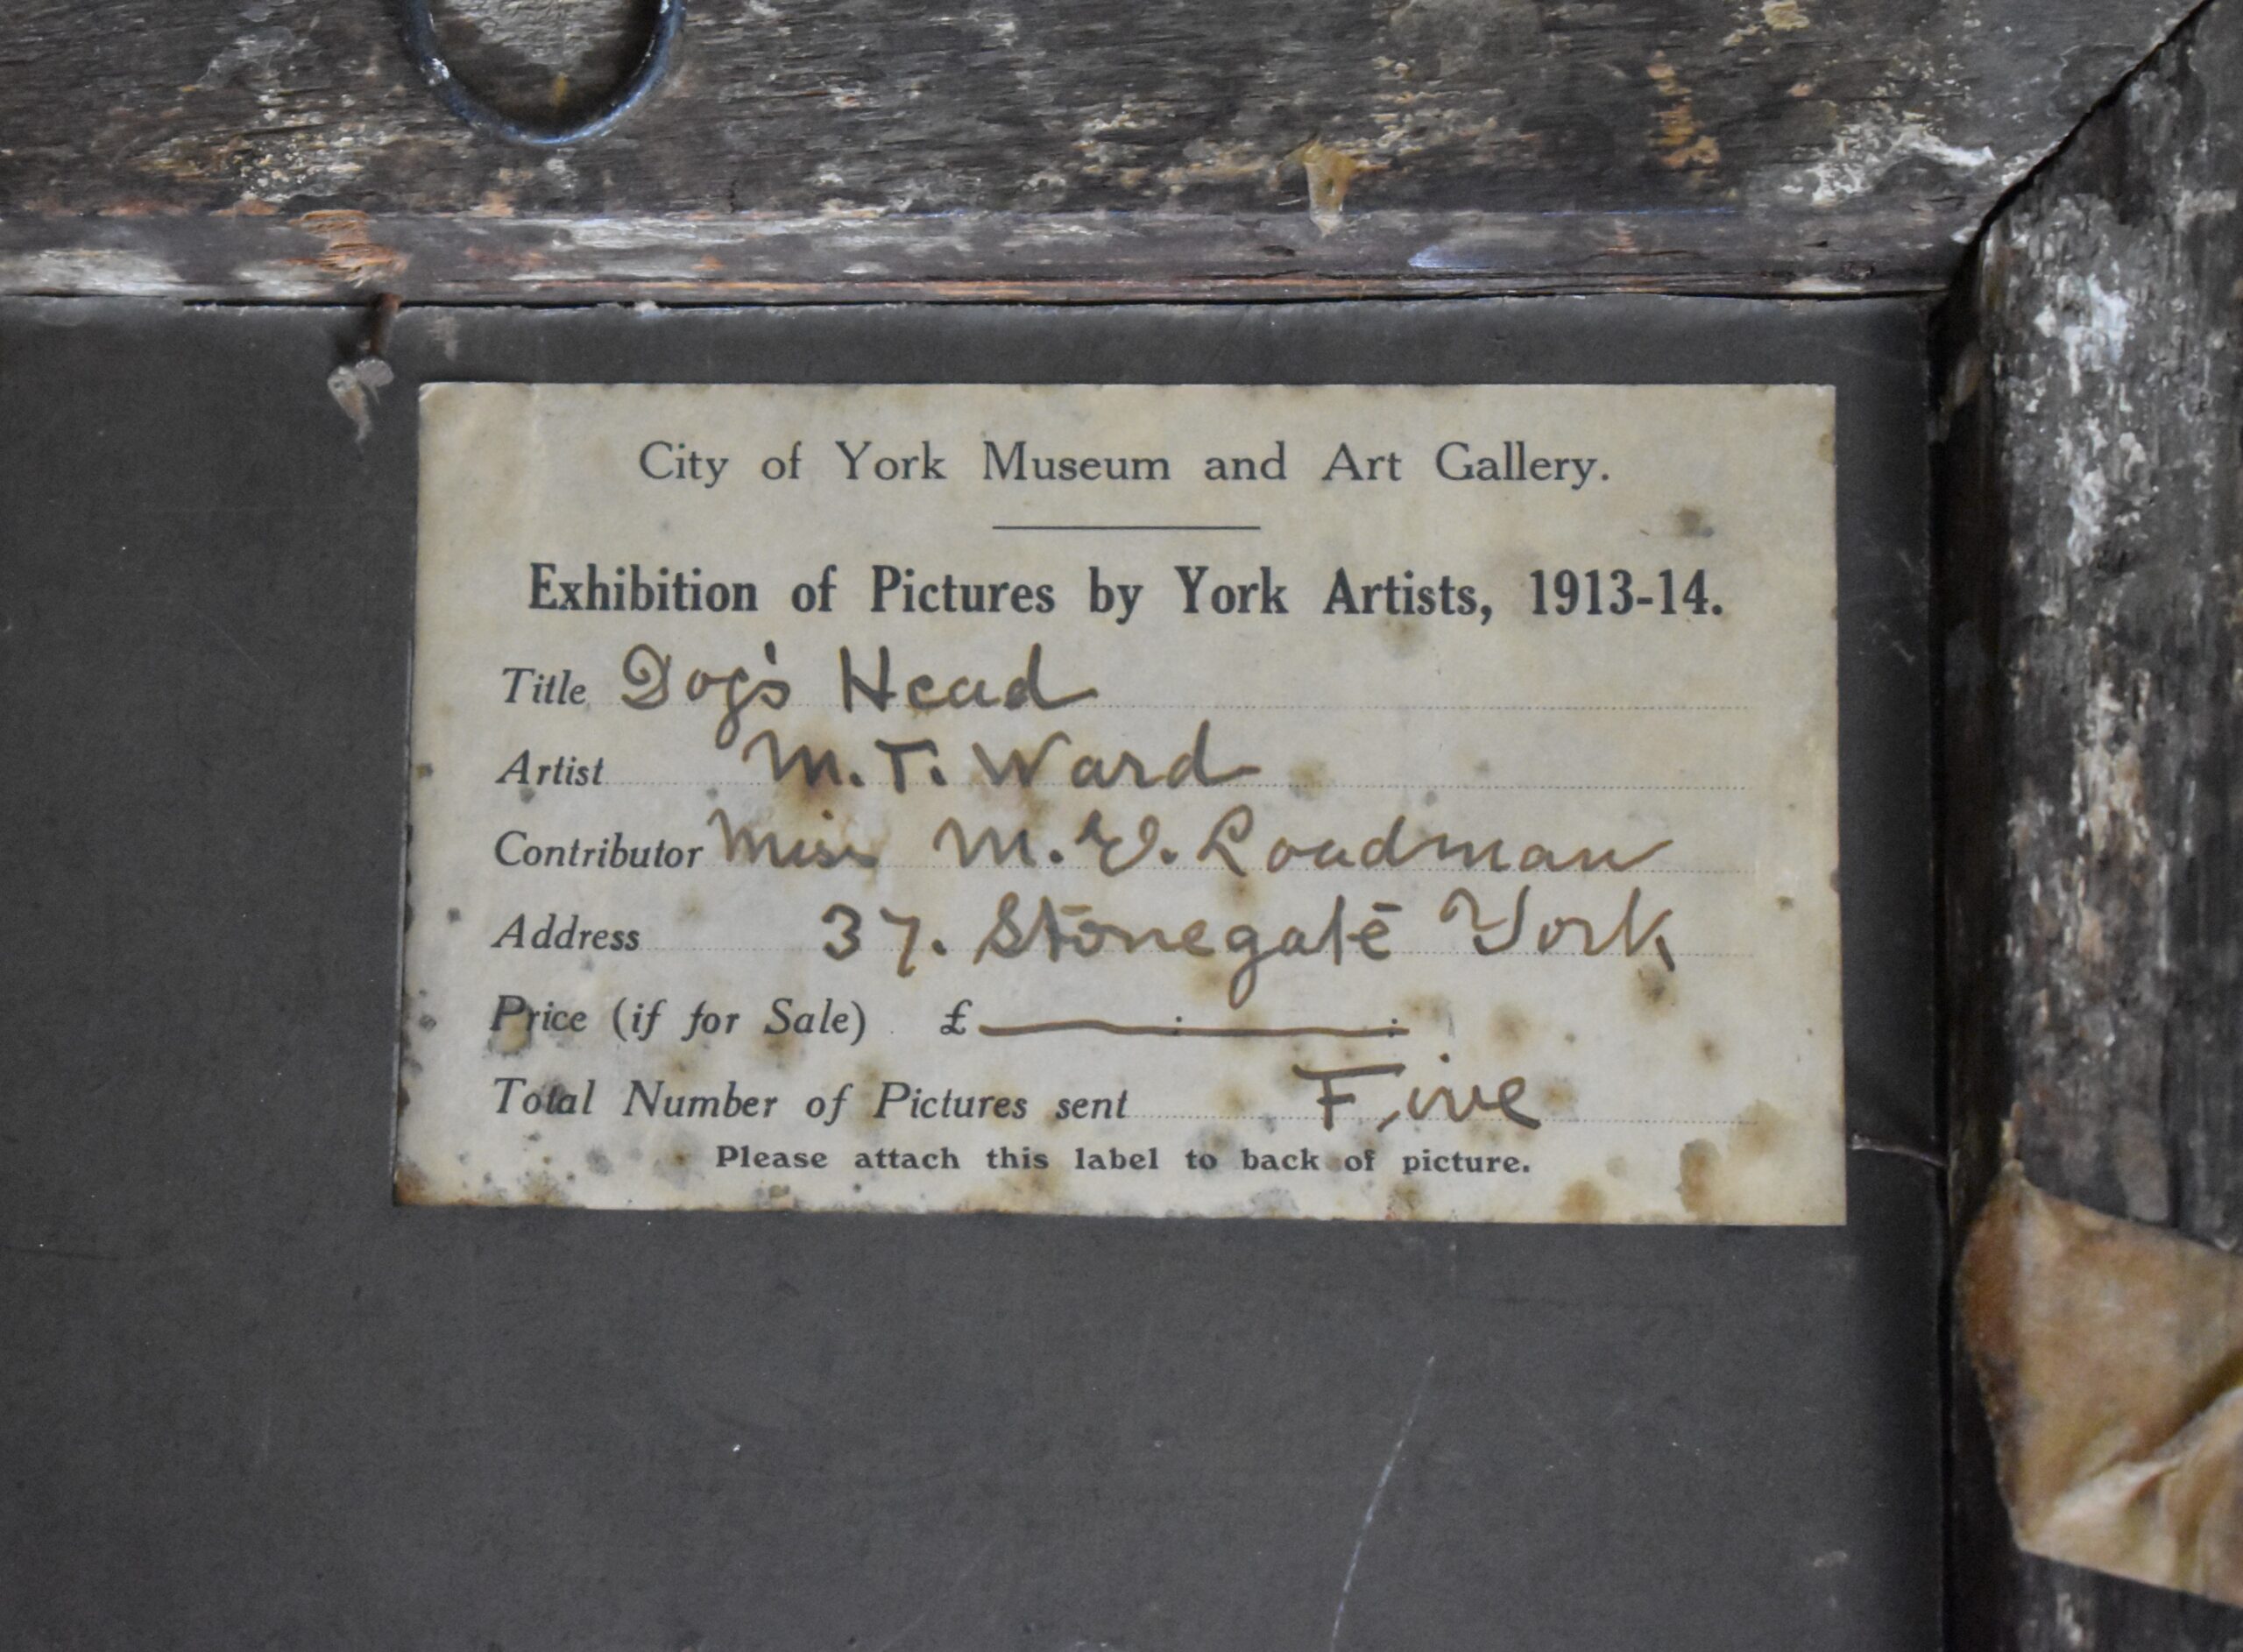 City of York Museum and Art Gallery.
Exhibition of Pictures by York Artists, 1913-14.
Title Dog's Head
Artist M. T. Ward
Contributor Miss M. E. Loadman
Address 37. Stonegate York
Price (if for Sale) £ — : — :
Total Number of Pictures sent Five
Please attach this label to back of picture.